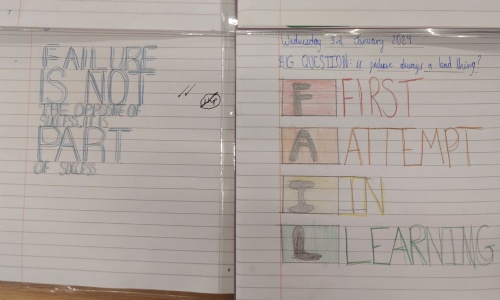 FAILURE
IS NOT
THE OPPOSITE OF
SUCCESS IT IS
PART
OF SUCCESS
Wednesday 3rd January 2024
BIG QUESTION: is failure always a bad thing?
F FIRST
A ATTEMPT
I IN
L LEARNING